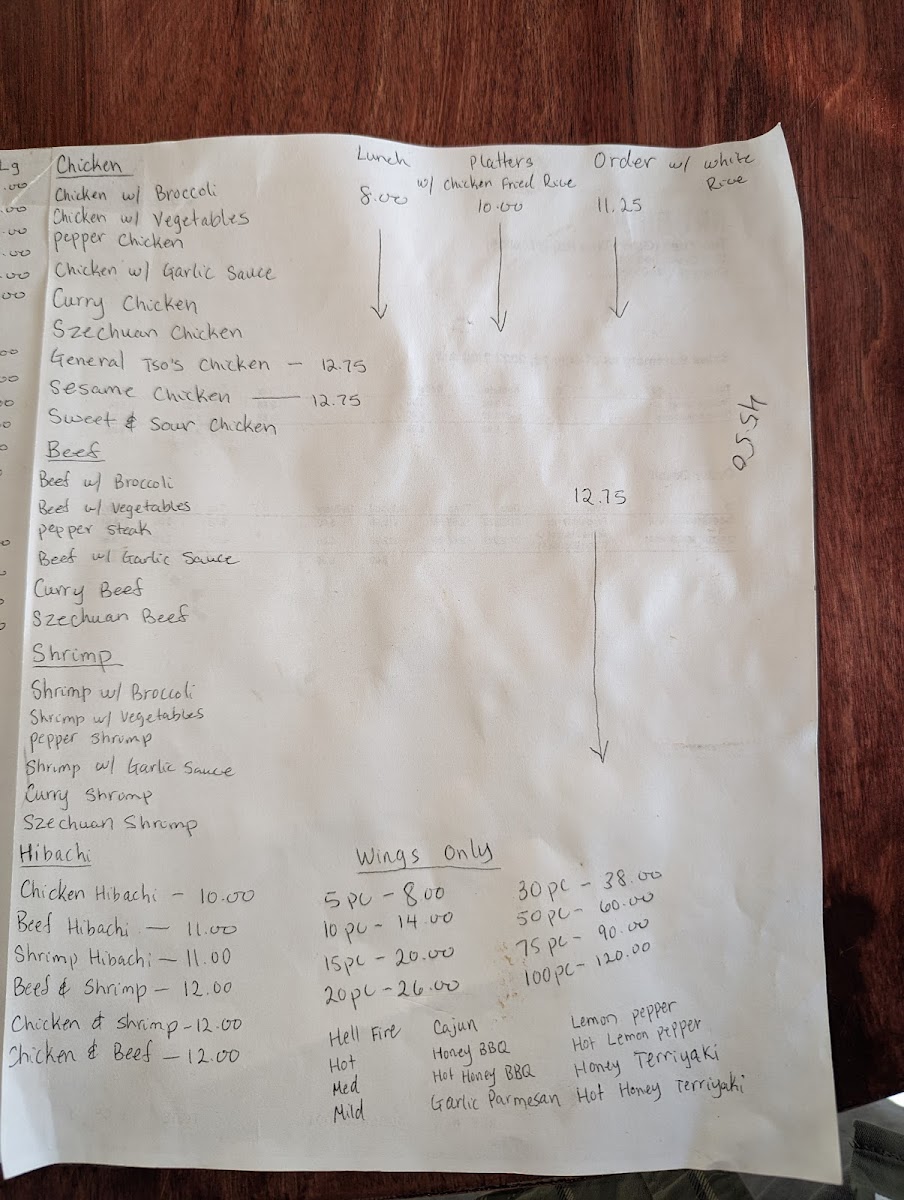 Lg
.00
.00
.00
.00
.00
00
00
00
Chicken
Lunch
Platters
w/ Chicken Fried Rice
Order w/ white
Rice
8.00
10.00
11.25
Chicken w/ Broccoli
Chicken w/ Vegetables
Pepper Chicken
Chicken w/ Garlic Sauce
Curry Chicken
Szechuan Chicken
General Tso's Chicken — 12.75
Sesame Chicken — 12.75
Sweet & Sour Chicken
45.50
Beef
Beef w/ Broccoli
Beef w/ Vegetables
Pepper Steak
Beef w/ Garlic Sauce
Curry Beef
Szechuan Beef
12.75
Shrimp
Shrimp w/ Broccoli
Shrimp w/ Vegetables
Pepper Shrimp
Shrimp w/ Garlic Sauce
Curry Shrimp
Szechuan Shrimp
Hibachi
Chicken Hibachi - 10.00
Beef Hibachi — 11.00
Shrimp Hibachi — 11.00
Beef & Shrimp - 12.00
Chicken & Shrimp - 12.00
Chicken & Beef - 12.00
Wings Only
5 pc - 8.00
10 pc - 14.00
15pc - 20.00
20pc - 26.00
30 pc - 38.00
50 pc - 60.00
75 pc - 90.00
100 pc - 120.00
Hell Fire
Hot
Med
Mild
Cajun
Honey BBQ
Hot Honey BBQ
Garlic Parmesan
Lemon pepper
Hot Lemon pepper
Honey Terriyaki
Hot Honey Terriyaki